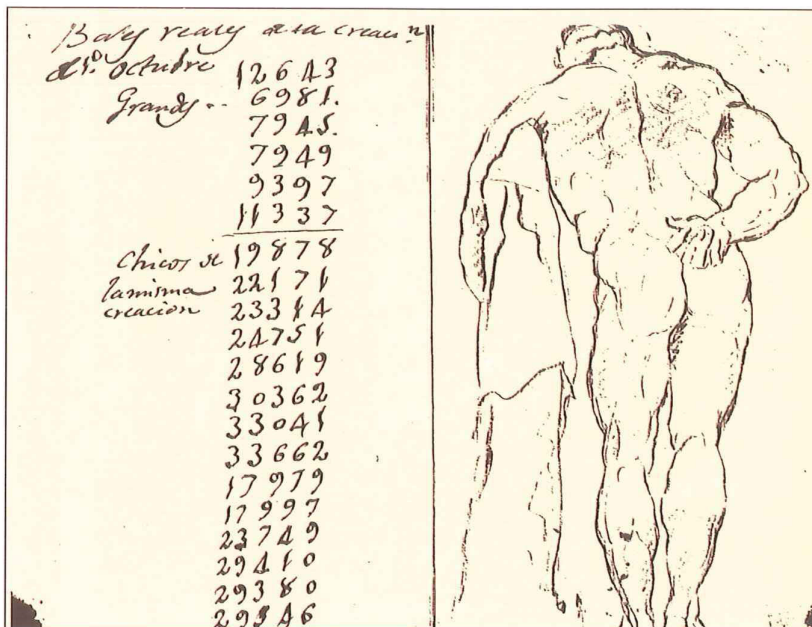 Bales reales de la creacin
de 1º octubre 12643
Grandes .. 6981.
7945.
7949
9397
11337
Chicos de 19878
la misma 22171
creacion 23314
24751
28619
30362
33041
33662
17979
17997
23749
29410
29380
29346